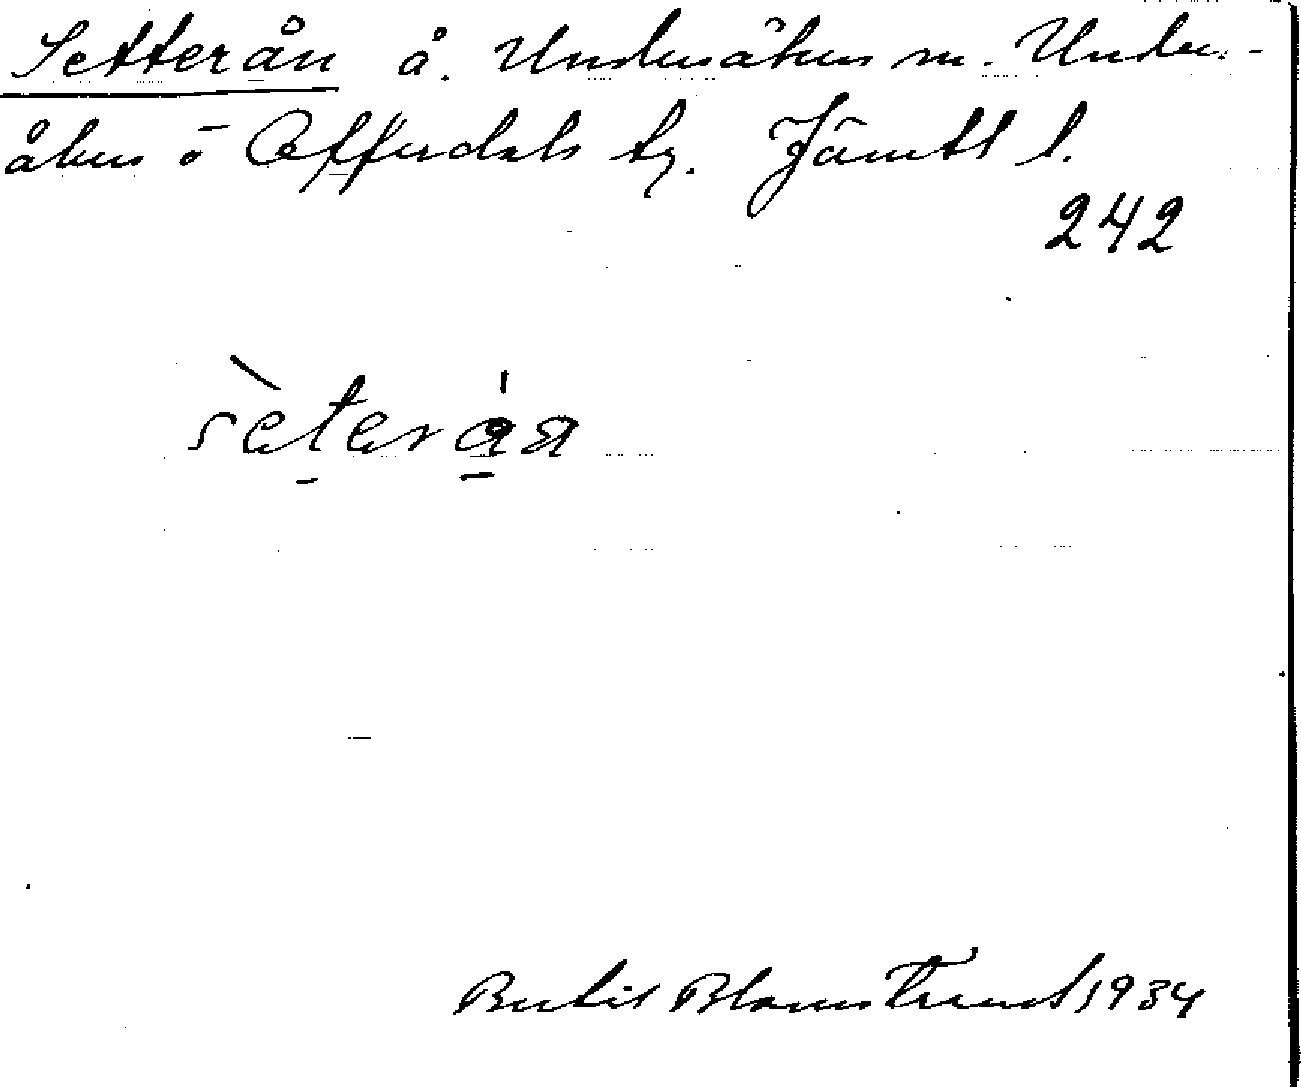 Setterån å. Undersåkers sn. Under-
åkers o Offerdals tg. Jämtl l.
242
sèterá̱a
Bertil Blomstrand 1934